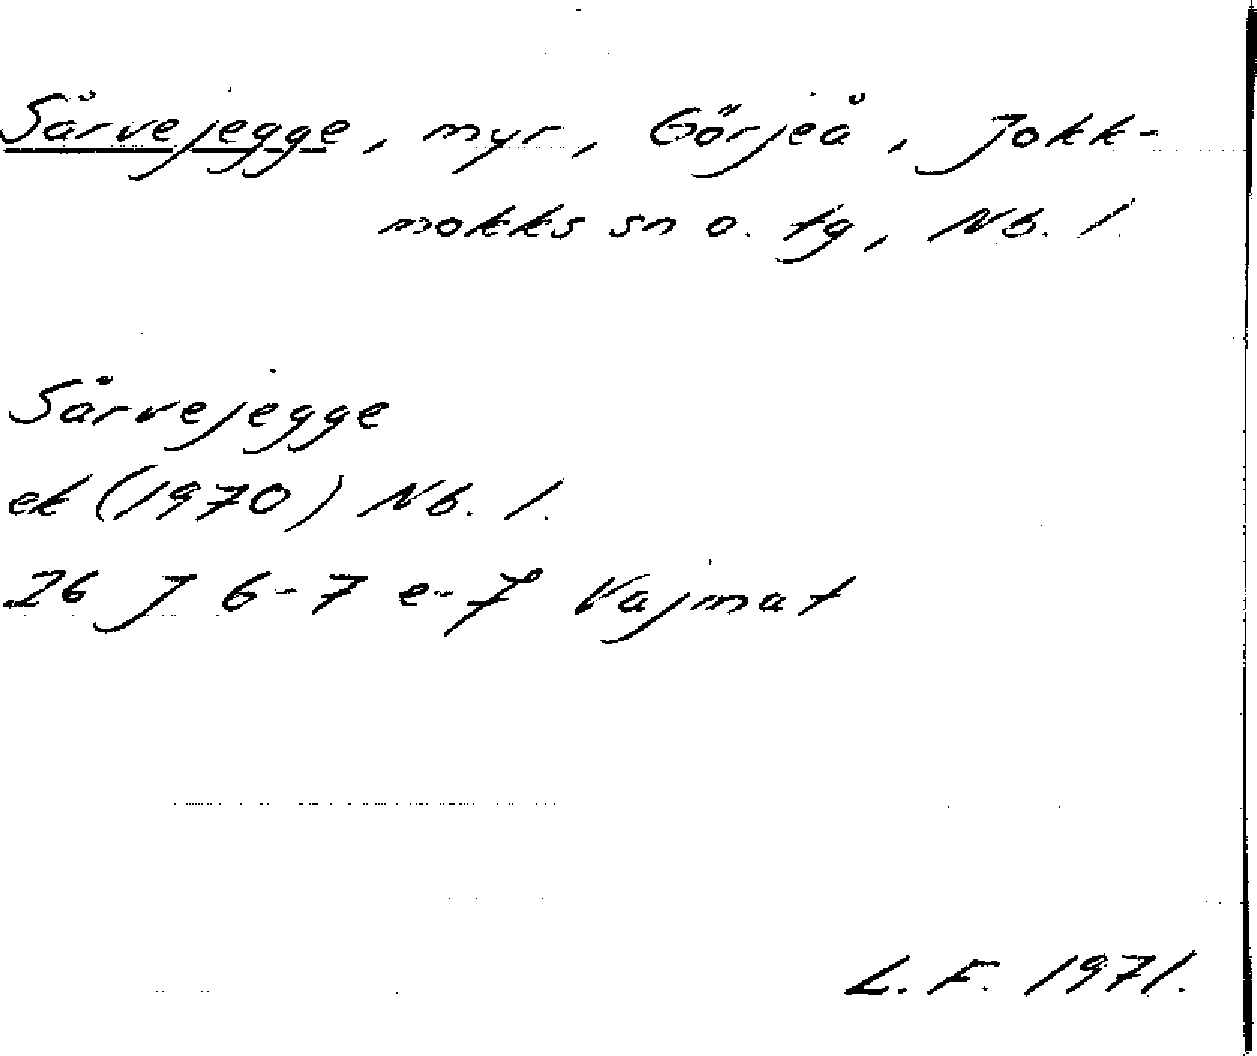 Sårvejegge, myr, Görjeå, Jokk-
mokks sn o. tg, Nb. l.
Sårvejegge
ek (1970) Nb. l.
26 J 6-7 e-f Vajmat
L. F. 1971.